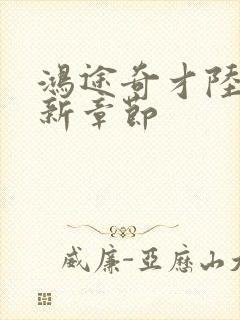 鴻途奇才陸
新章節
威廉-亞歷山大